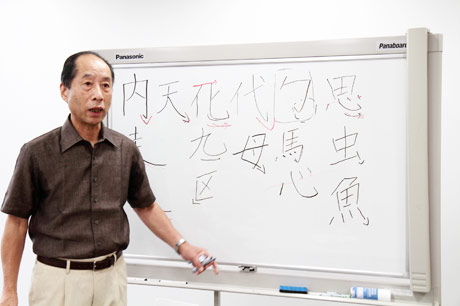 Panasonic
Panaboard
思虫魚
馬心
代母
九区
天
内